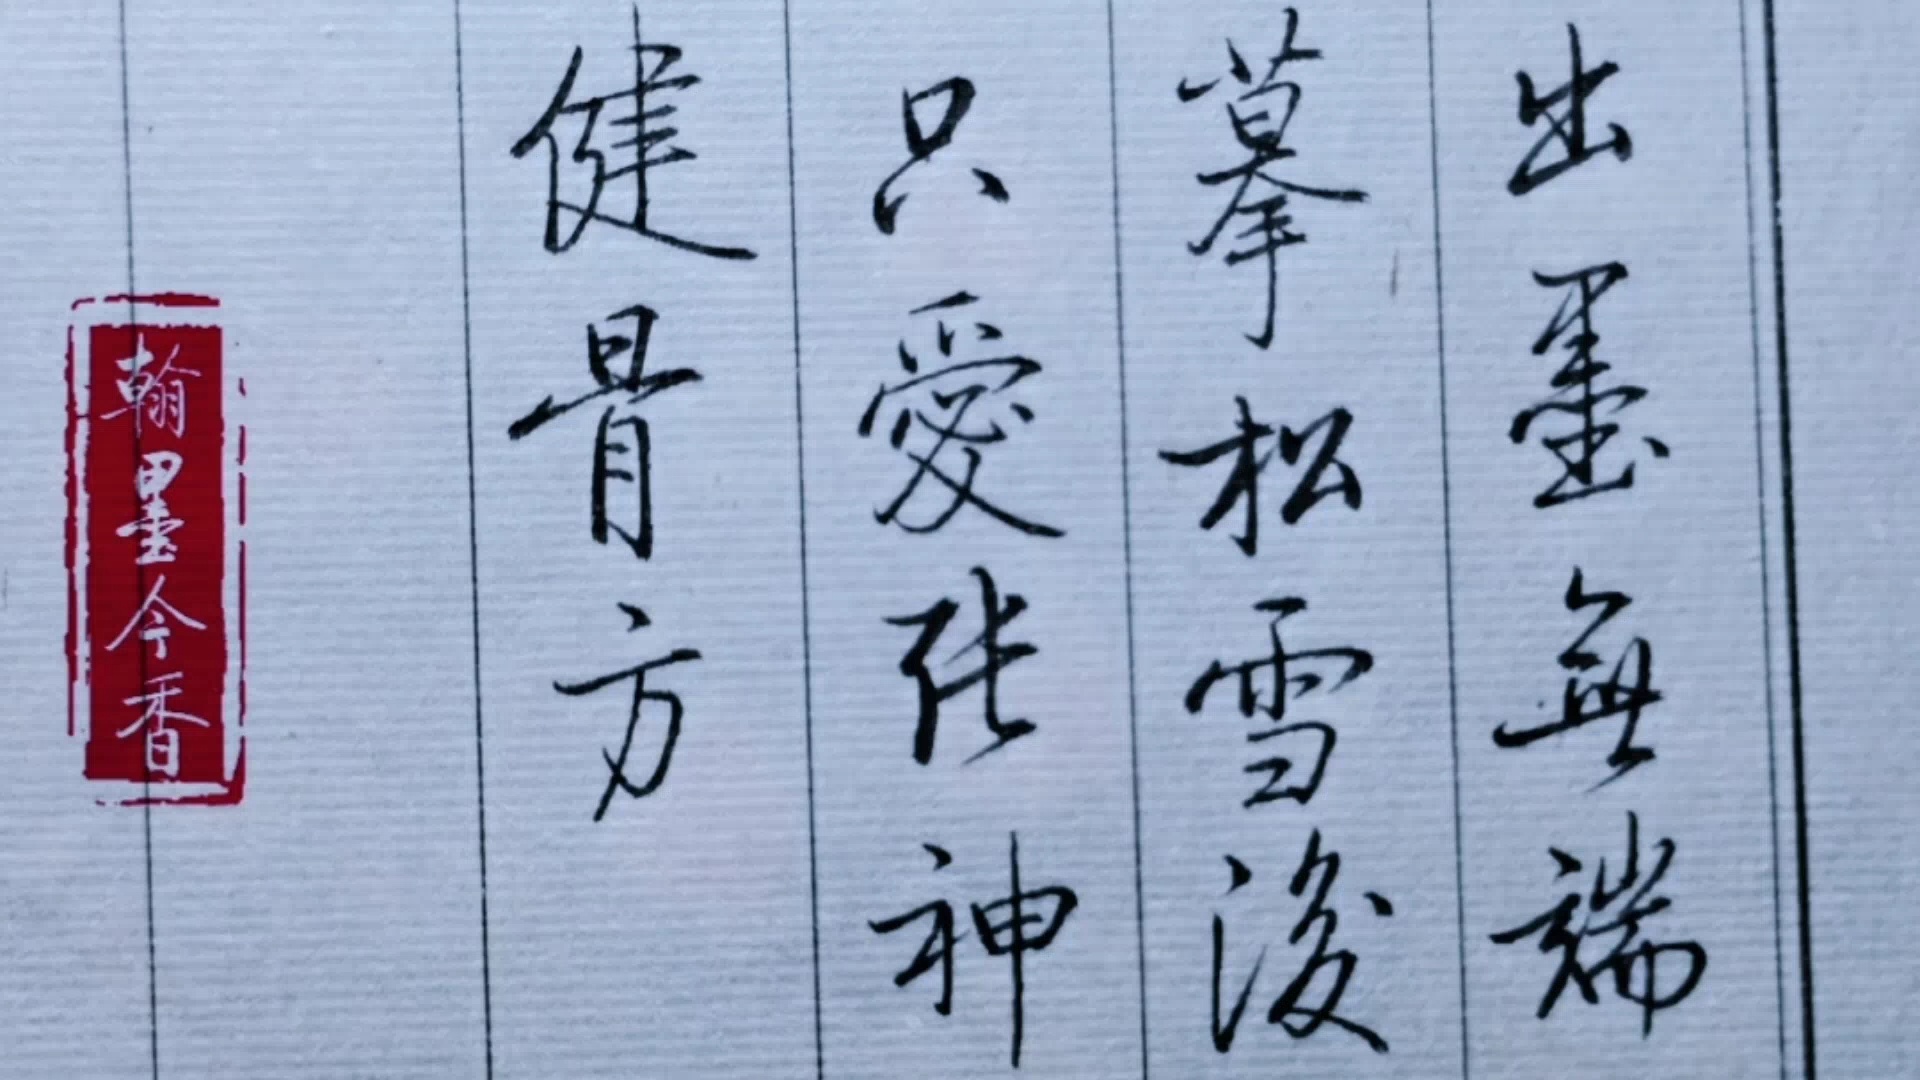 出墨無端
摹松雪後
只愛張神
健骨方
翰墨今香